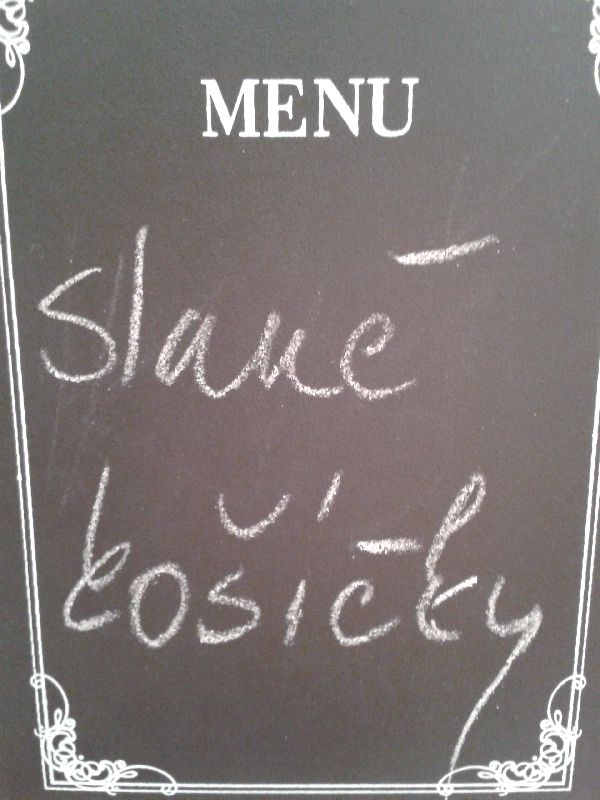 MENU
slané
košíčky